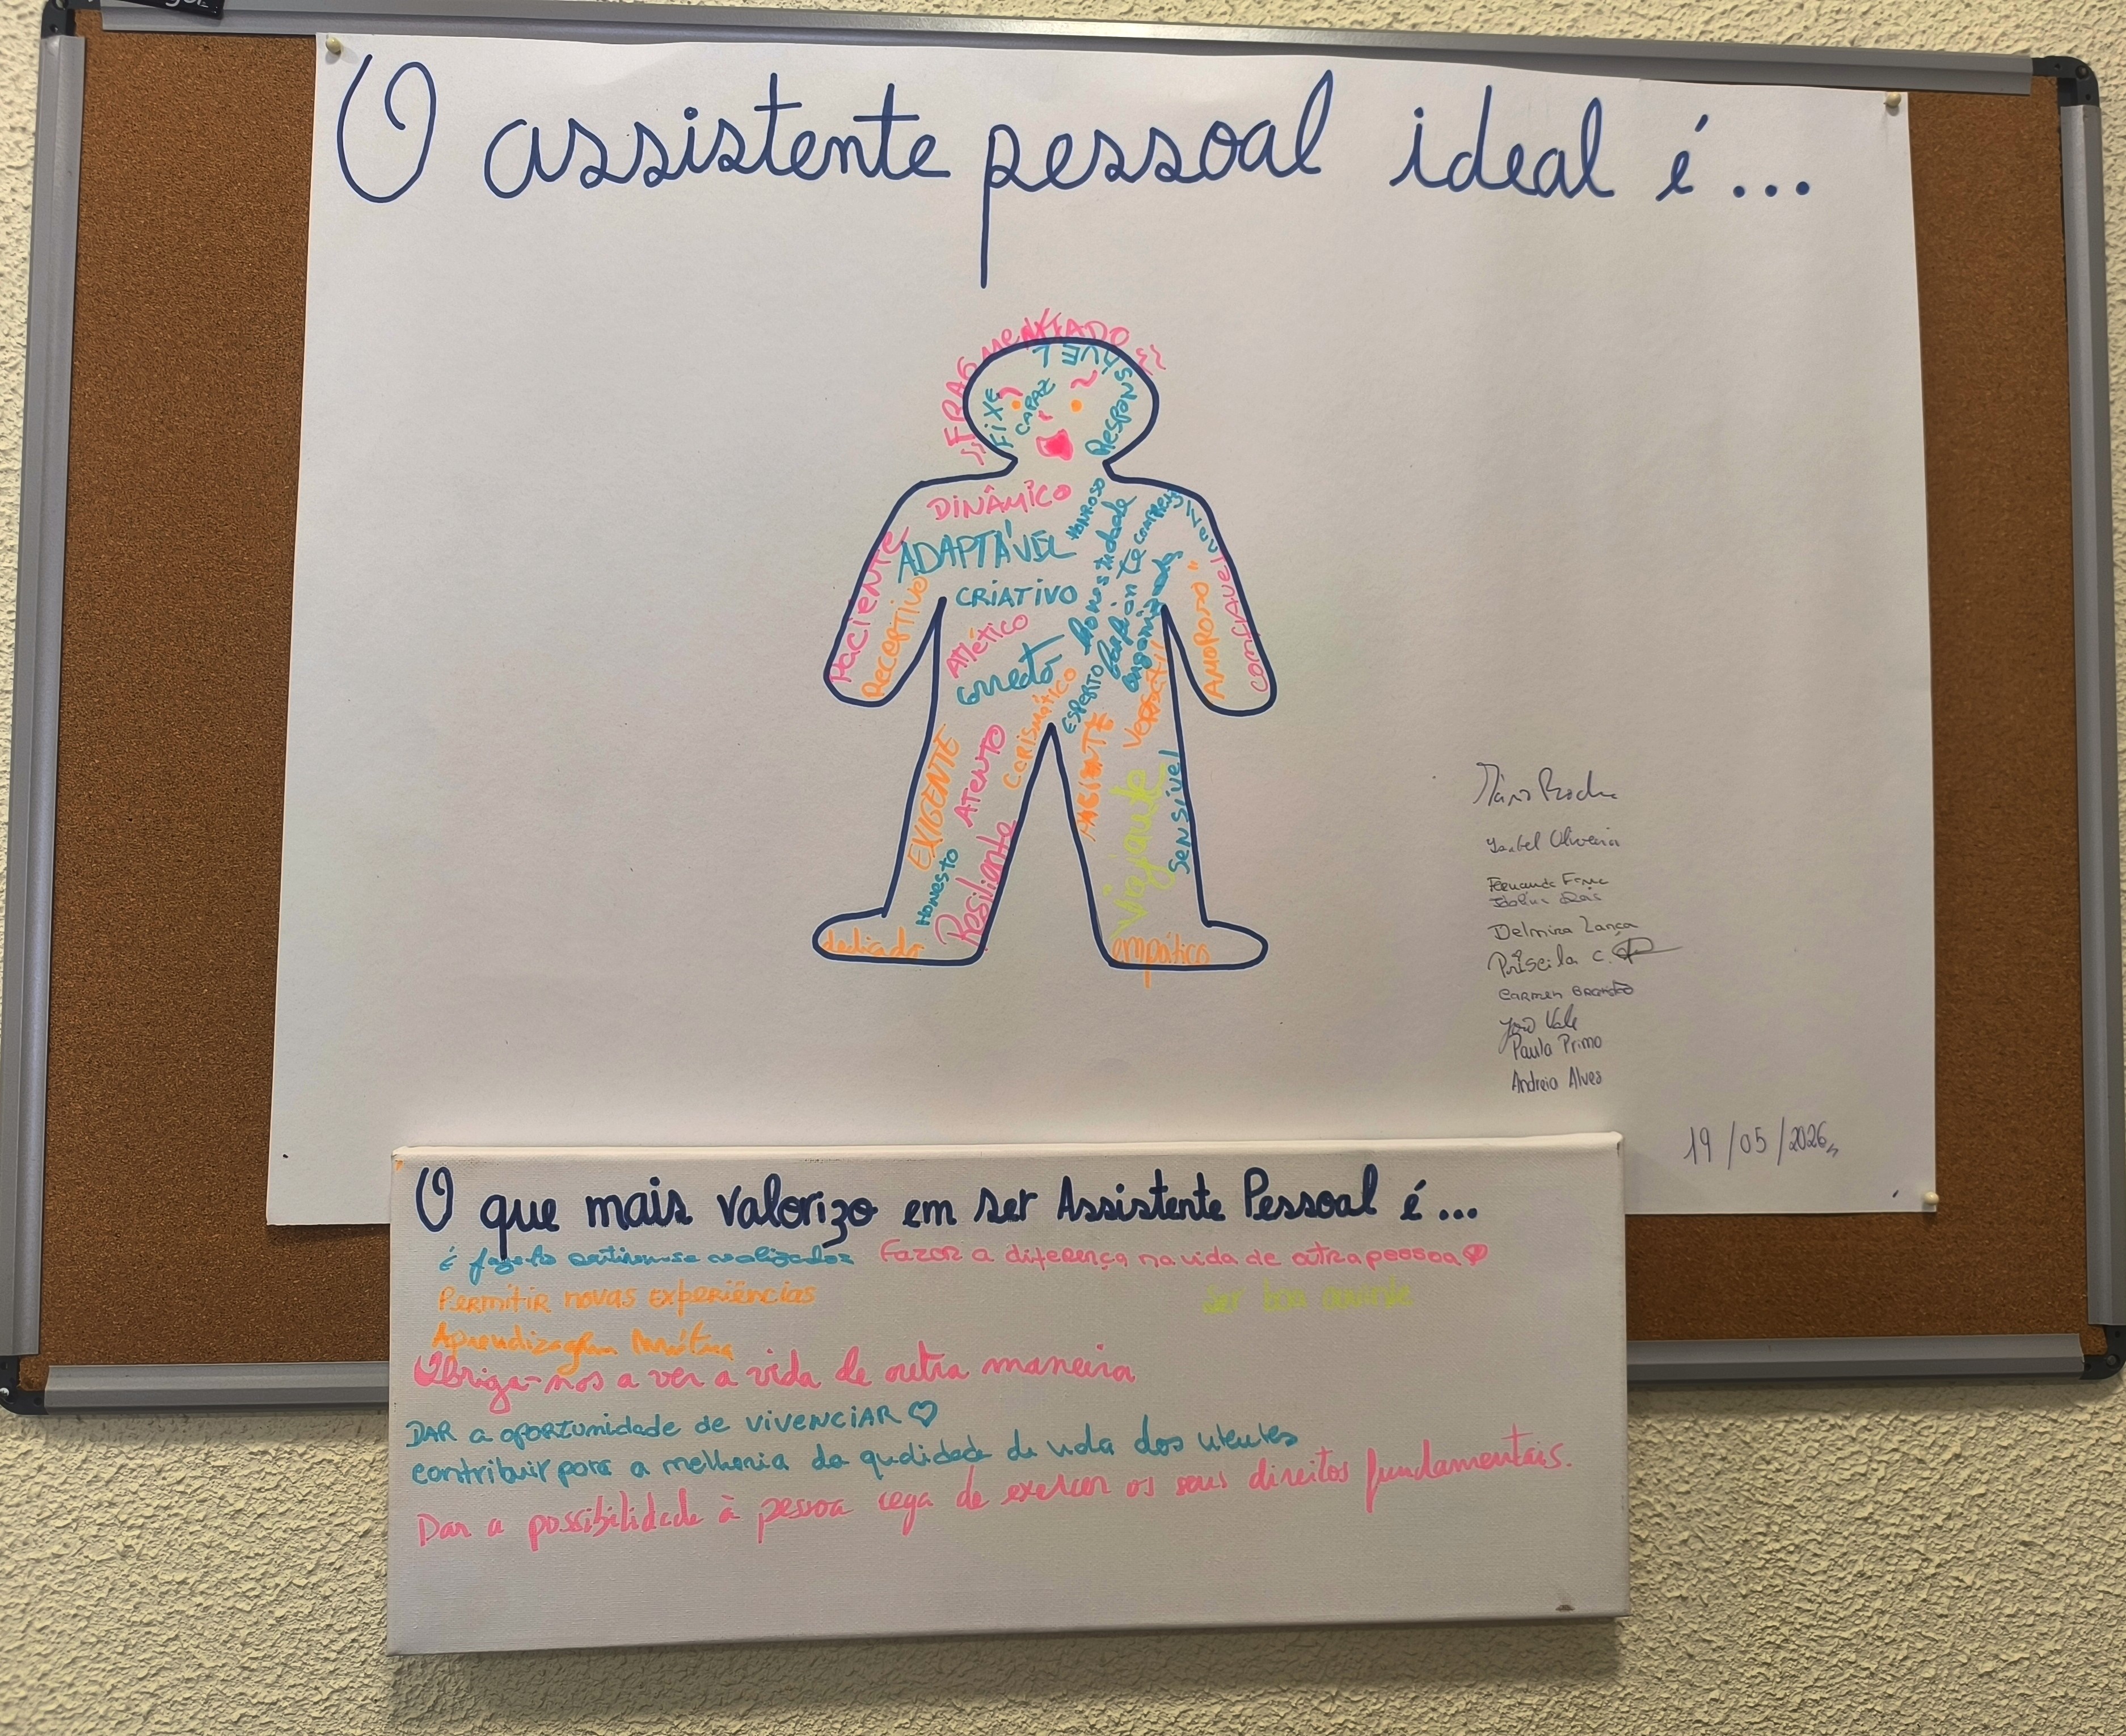 O assistente pessoal ideal é...
FRAGMENTADO
FIXE
CAPAZ
RESPONSÁVEL
DINÂMICO
HONROSO
ADAPTÁVEL
Honestidade
CRIATIVO
PACIENTE
Receptivo
AMOROSO
confiavel
Atlético
correto
Organizado
ESPÍRITO
Versátil
carismático
EXIGENTE
ATENTO
Viajante
Sensível
Honesto
Resiliante
dedicado
empático
Isabel Oliveira
Delmira Lança
Priscila C.
Carmen Brandão
João Vale
Paula Primo
Andreia Alves
19/05/2026
O que mais valorizo em ser Assistente Pessoal é...
é fazê-lo sentirem-se realizados
Fazer a diferença na vida de outra pessoa
Permitir novas experiências
Ser bom ouvinte
Aprendizagem Mútua
Obriga-nos a ver a vida de outra maneira
DAR a oportunidade de vivenciar
contribuir para a melhoria da qualidade de vida dos utentes
Dar a possibilidade à pessoa cega de exercer os seus direitos fundamentais.